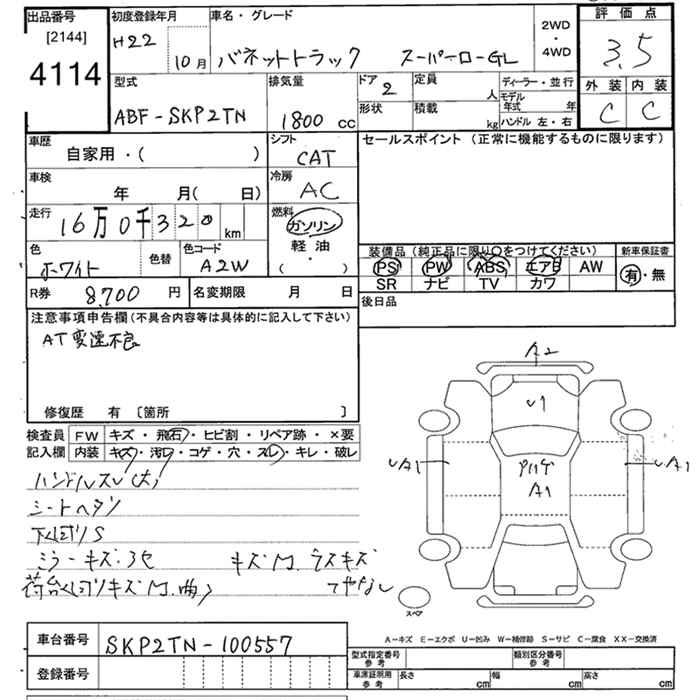 出品番号
[2144]
4114
初度登録年月
H22
10月
車名・グレード
バネットトラック スーパーローGL
2WD
・
4WD
評価点
3.5
外装 内装
C C
型式
ABF-SKP2TN
排気量
1800 cc
ドア
2
形状
定員
人
積載
kg
ディーラー・並行
モデル
年式 年
ハンドル 左・右
車歴
自家用・( )
シフト
CAT
セールスポイント (正常に機能するものに限ります)
車検
年 月( 日)
冷房
AC
走行
16万0千320km
燃料
ガソリン
軽油
( ・ )
色
ホワイト
色替
色コード
A2W
装備品(純正品に限り〇をつけてください)
PS PW ABS エアB AW
SR ナビ TV カワ
新車保証書
有・無
R券
8,700 円
名変期限 月 日
後日品
注意事項申告欄(不具合内容等は具体的に記入して下さい)
AT変速不良
修復歴 有 〔箇所 〕
検査員
記入欄
FW キズ・飛石・ヒビ割・リペア跡・×要
内装 キズ・汚れ・コゲ・穴・スレ・キレ・破レ
ハンドルスレ(大)
シートヘタリ
下廻りS
ミラーキズ・3セ キズM.ラスキズ
荷台廻りキズM.曲)
A2
U1
UA1
A1
UA1
スペア
A-キズ E-エクボ U-凹み W-補修跡 S-サビ C-腐食 XX-交換済
車台番号
SKP2TN-100557
登録番号
型式指定番号
参考
類別区分番号
参考
車庫証明用
参考
長さ cm
幅 cm
高さ cm